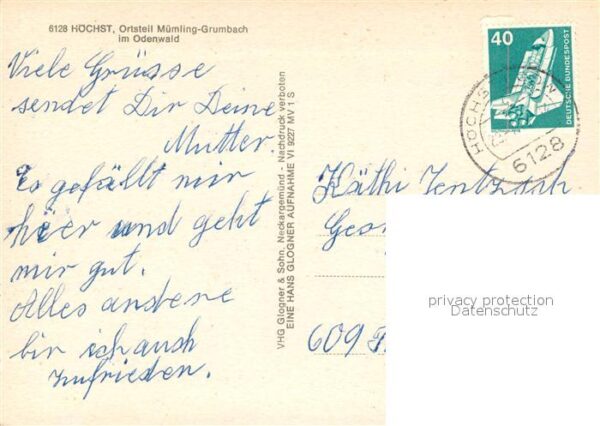 6128 HÖCHST, Ortsteil Mümling-Grumbach
im Odenwald
Viele Grüsse
sendet Dir Deine
Mutter.
Es gefällt mir
hier und geht
mir gut.
Alles andere
bin ich auch
zufrieden.
VHG Glogner & Sohn, Neckargemünd - Nachdruck verboten
EINE HANS GLOGNER AUFNAHME VI 9227 MVW S
40
DEUTSCHE BUNDESPOST
HÖCHS
6128
Käthi
609
privacy protection
Datenschutz